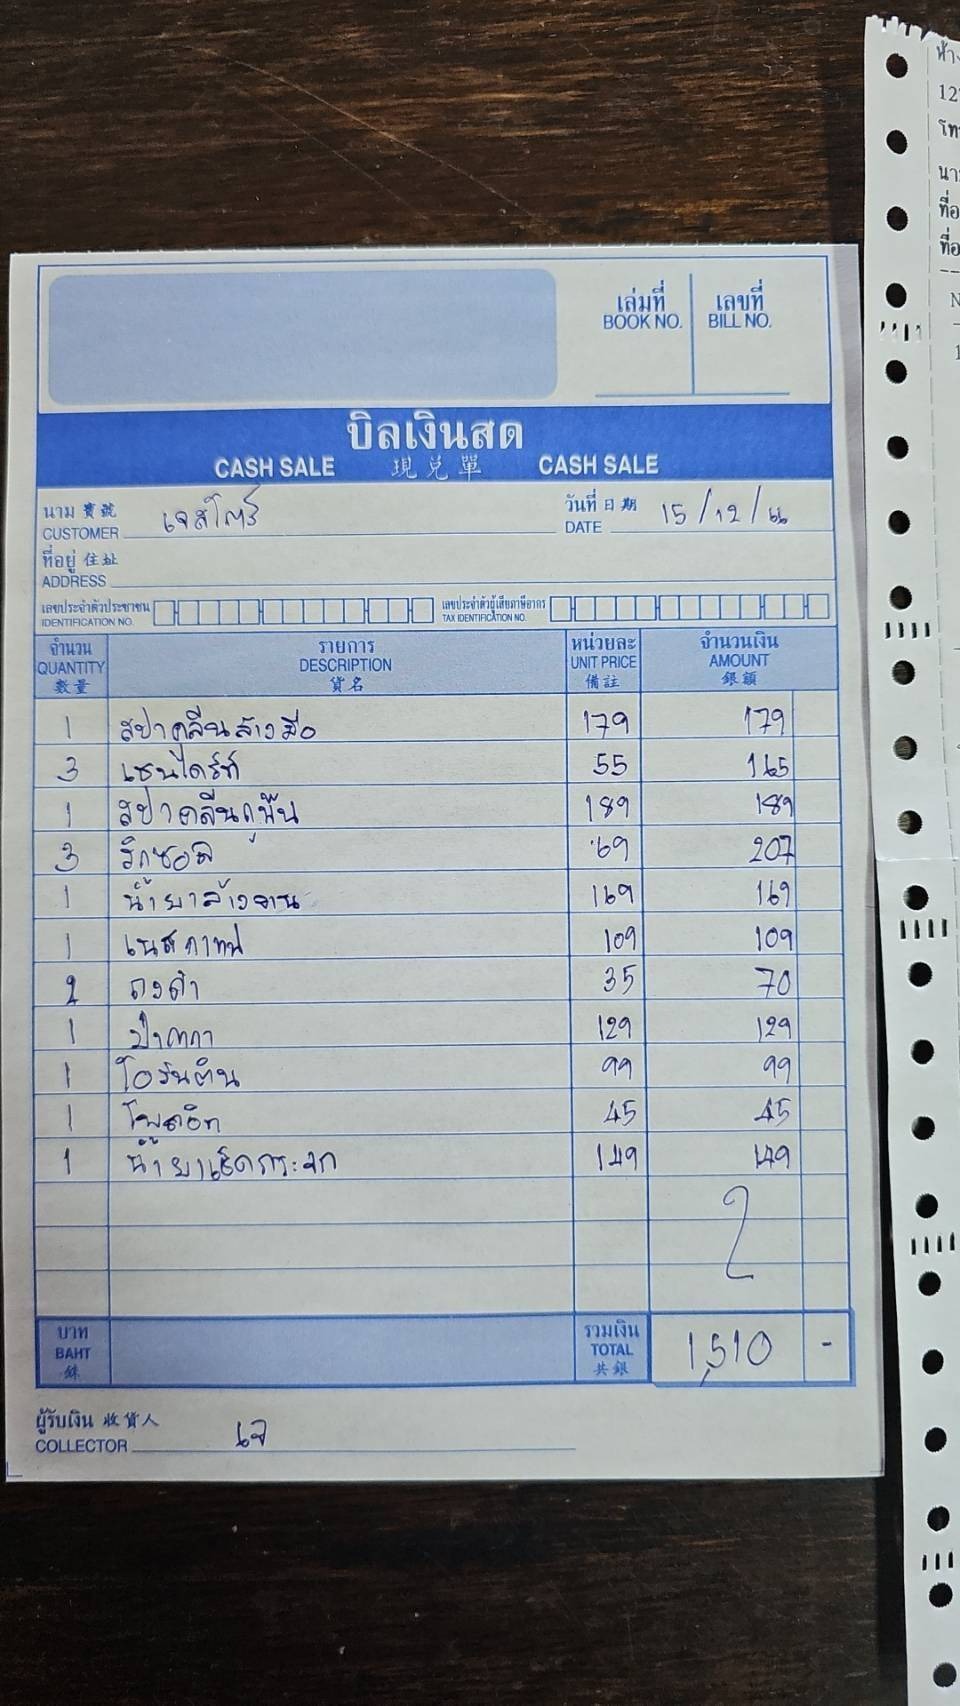 เล่มที่ เลขที่
BOOK NO. BILL NO.
บิลเงินสด
CASH SALE 現兌單 CASH SALE
นาม 寶號 เจสโตร์ วันที่ 日期 15/12/66
CUSTOMER DATE
ที่อยู่ 住址
ADDRESS
เลขประจำตัวประชาชน เลขประจำตัวผู้เสียภาษีอากร
IDENTIFICATION NO. TAX IDENTIFICATION NO.
จำนวน รายการ หน่วยละ จำนวนเงิน
QUANTITY DESCRIPTION UNIT PRICE AMOUNT
數量 貨名 備註 銀額
1 สปาคลีนล้างมือ 179 179
3 เชนไดร์ท์ 55 165
1 สปาคลีนถูพื้น 189 189
3 วิกซอล 69 207
1 น้ำยาล้างจาน 169 169
1 109 109
2 ถงดำ 35 70
1 129 129
1 99 99
1 โพสอิท 45 45
1 น้ำยาเช็ดกระจก 149 149
บาท รวมเงิน
BAHT TOTAL 1,510 -
銖 共銀
ผู้รับเงิน 收貨人 เจ
COLLECTOR